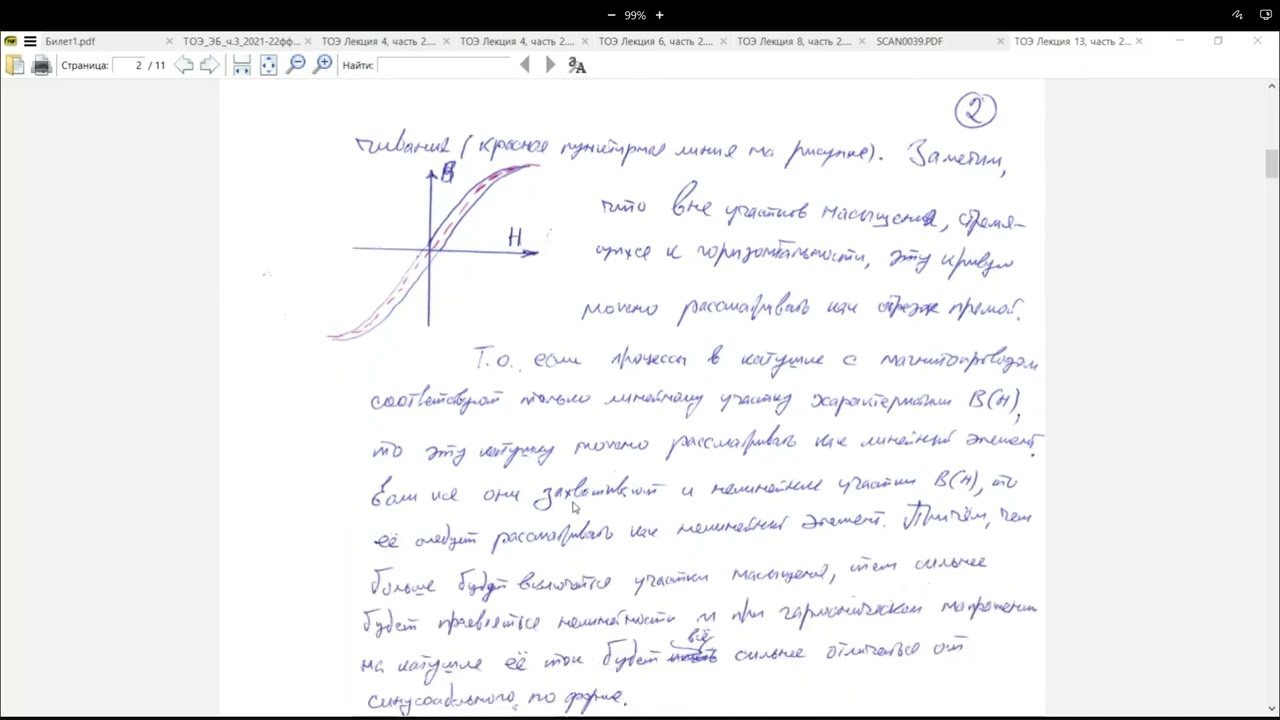 99%
Билет1.pdf ТОЭ_ЭБ_ч.3_2021-22фф... ТОЭ Лекция 4, часть 2.... ТОЭ Лекция 4, часть 2.... ТОЭ Лекция 6, часть 2.... ТОЭ Лекция 8, часть 2.... SCAN0039.PDF ТОЭ Лекция 13, часть 2...
Страница: 2 / 11 Найти:
2
чивания (красная пунктирная линия на рисунке). Заметим,
B
что вне участков насыщения, стремя-
H
щихся к горизонтальности, эту кривую
можно рассматривать как отрезок прямой.
Т.о., если процессы в катушке с магнитопроводом
соответствуют только линейному участку характеристики B(H),
то эту катушку можно рассматривать как линейный элемент.
Если же они захватывают и нелинейные участки B(H), то
её следует рассматривать как нелинейный элемент. Причём, чем
больше будут включаться участки насыщения, тем сильнее
будет проявляться нелинейность и при гармоническом напряжении
на катушке её ток будет всё сильнее отличаться от
синусоидального по форме.